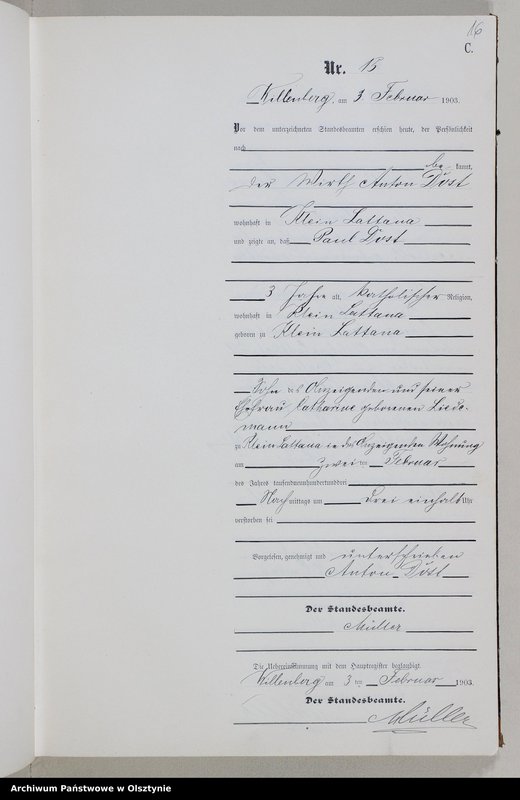 16
C.
Nr. 13
Willenberg, am 3 Februar 1903.
Vor dem unterzeichneten Standesbeamten erschien heute, der Persönlichkeit
nach
be kannt,
der Wirth Anton Dost
wohnhaft in Klein Lattana
und zeigte an, daß Paul Dost
3 Jahre alt, katholischer Religion,
wohnhaft in Klein Lattana
geboren zu Klein Lattana
Sohn des Anzeigenden und seiner
Ehefrau Catharine geborenen Liede-
mann
zu Klein Lattana in des Anzeigenden Wohnung
am zwei ten Februar
des Jahres tausendneunhundertunddrei
Nach mittags um drei einhalb Uhr
verstorben sei
Vorgelesen, genehmigt und unterschrieben
Anton Dost
Der Standesbeamte.
Müller
Die Uebereinstimmung mit dem Hauptregister beglaubigt.
Willenberg am 3 ten Februar 1903.
Der Standesbeamte.
Müller
Archiwum Państwowe w Olsztynie